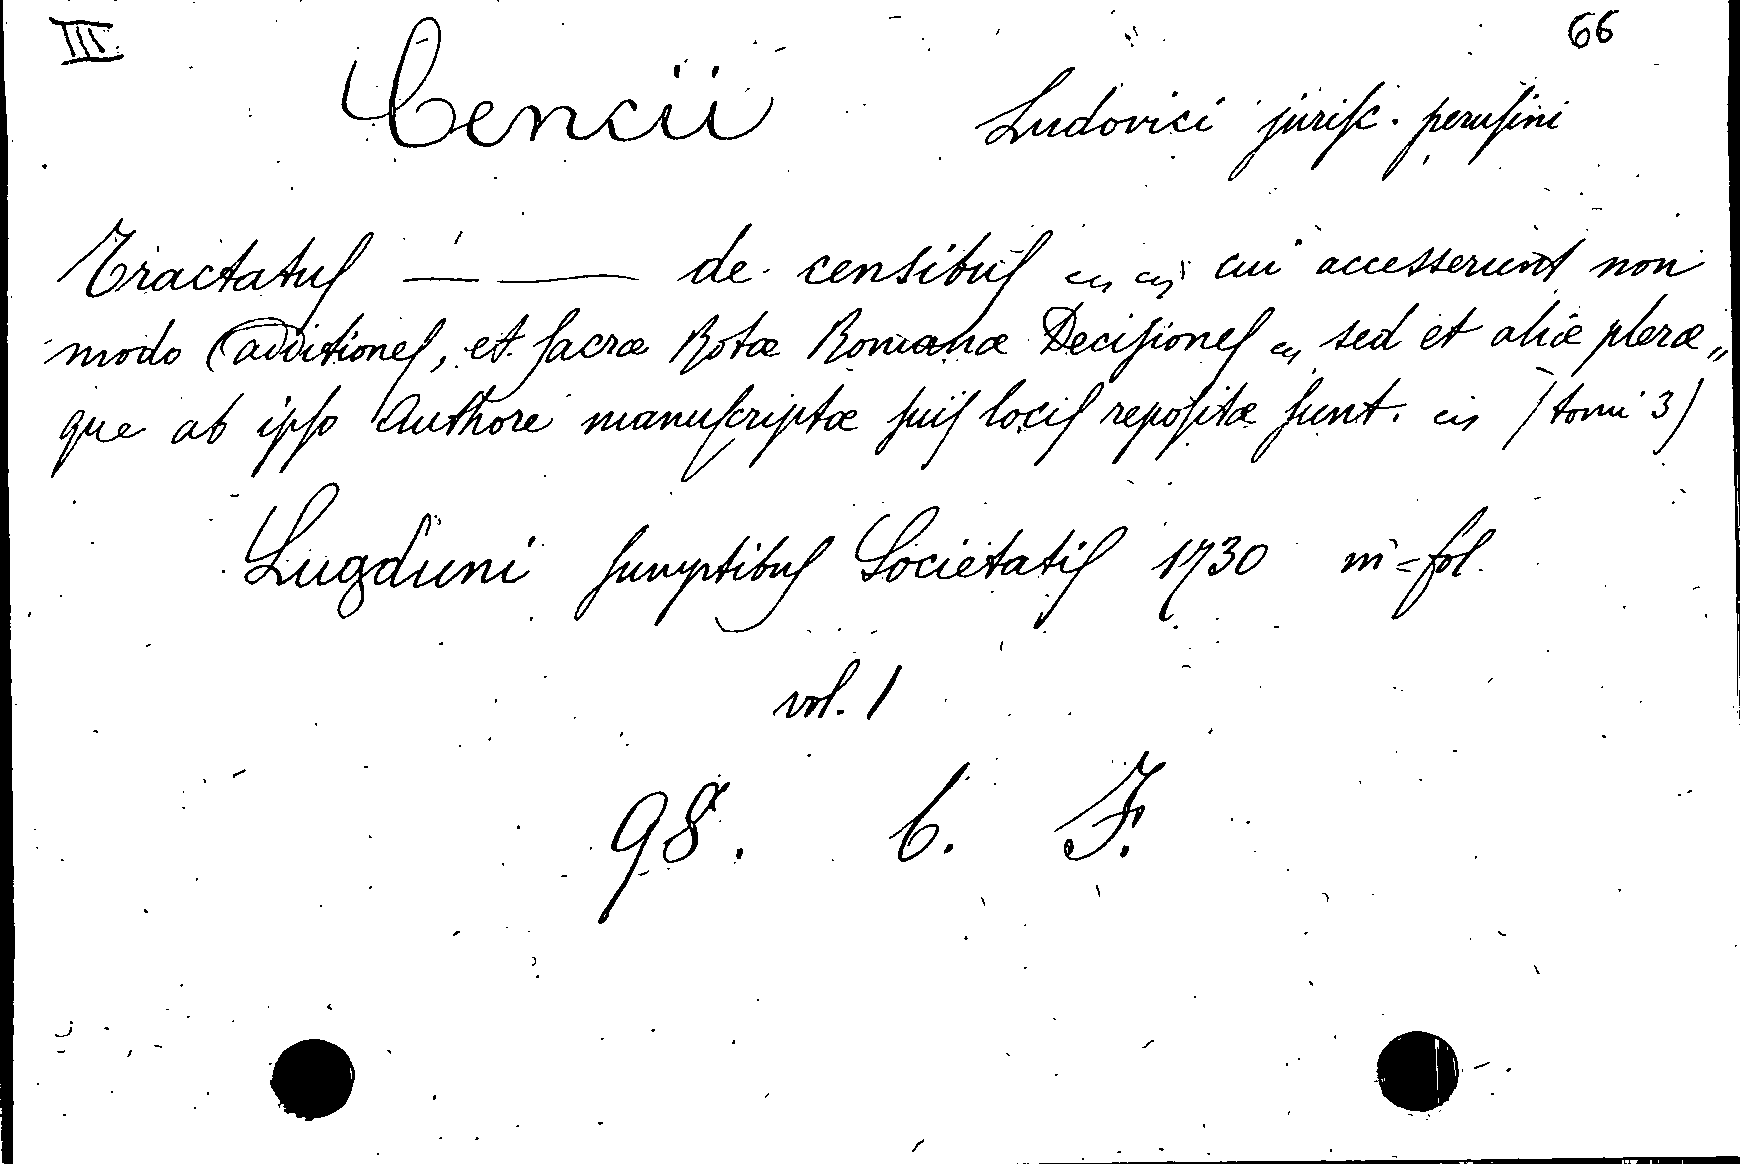 III. 66
Cencii Ludovici juriſc. peruſini
Tractatuſ — — de censibuſ cui accesserunt non
modo (additioneſ, et ſacræ Rotæ Romanæ Deciſioneſ sed et aliæ pleræ„
que ab ipſo Authore manuſcriptæ ſuiſ lociſ repoſitæ ſunt. (tomi 3)
Lugduni ſumptibuſ Societatiſ 1730 in=fol.
vol. 1
98. b. F.